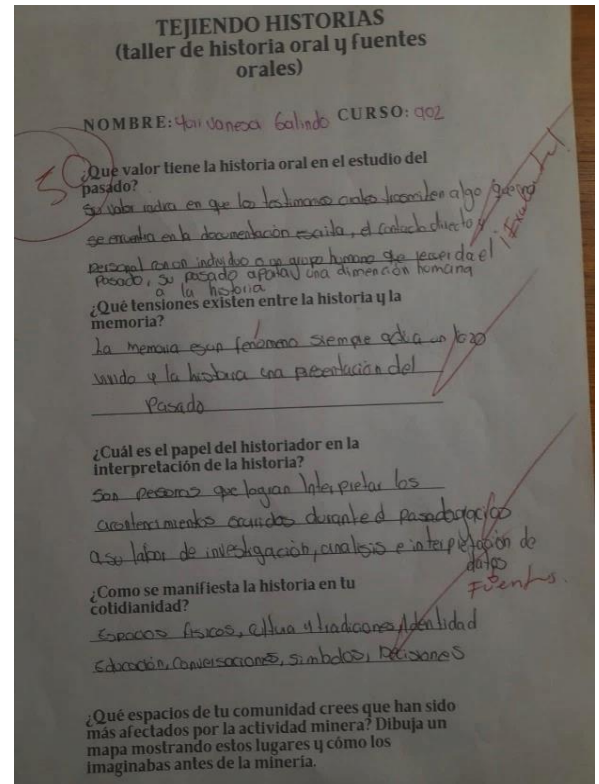 TEJIENDO HISTORIAS
(taller de historia oral y fuentes
orales)
NOMBRE: Yuri Vanesa Galindo CURSO: 902
50
¿Qué valor tiene la historia oral en el estudio del
pasado?
Su valor radica en que los testimonios orales trasmiten algo que no
se encuentra en la documentación escrita, el contacto directo y
personal con un individuo o un grupo humano que recuerda el
Pasado, su pasado aporta una dimención humana
a la historia
¡Excelente!
¿Qué tensiones existen entre la historia y la
memoria?
La memoria es un fenómeno siempre un lazo
vivido y la historia una presentación del
Pasado
¿Cuál es el papel del historiador en la
interpretación de la historia?
Son personas que logran Interpretar los
acontencimientos ocurridos durante el pasado gracias
a su labor de investigación, analisis e interpretación de
datos
Fuentes.
¿Como se manifiesta la historia en tu
cotidianidad?
Espacios fisicos, cultura y tradiciones, Identidad
Educación, Conversaciones, simbolos, Decisiones
¿Qué espacios de tu comunidad crees que han sido
más afectados por la actividad minera? Dibuja un
mapa mostrando estos lugares y cómo los
imaginabas antes de la minería.